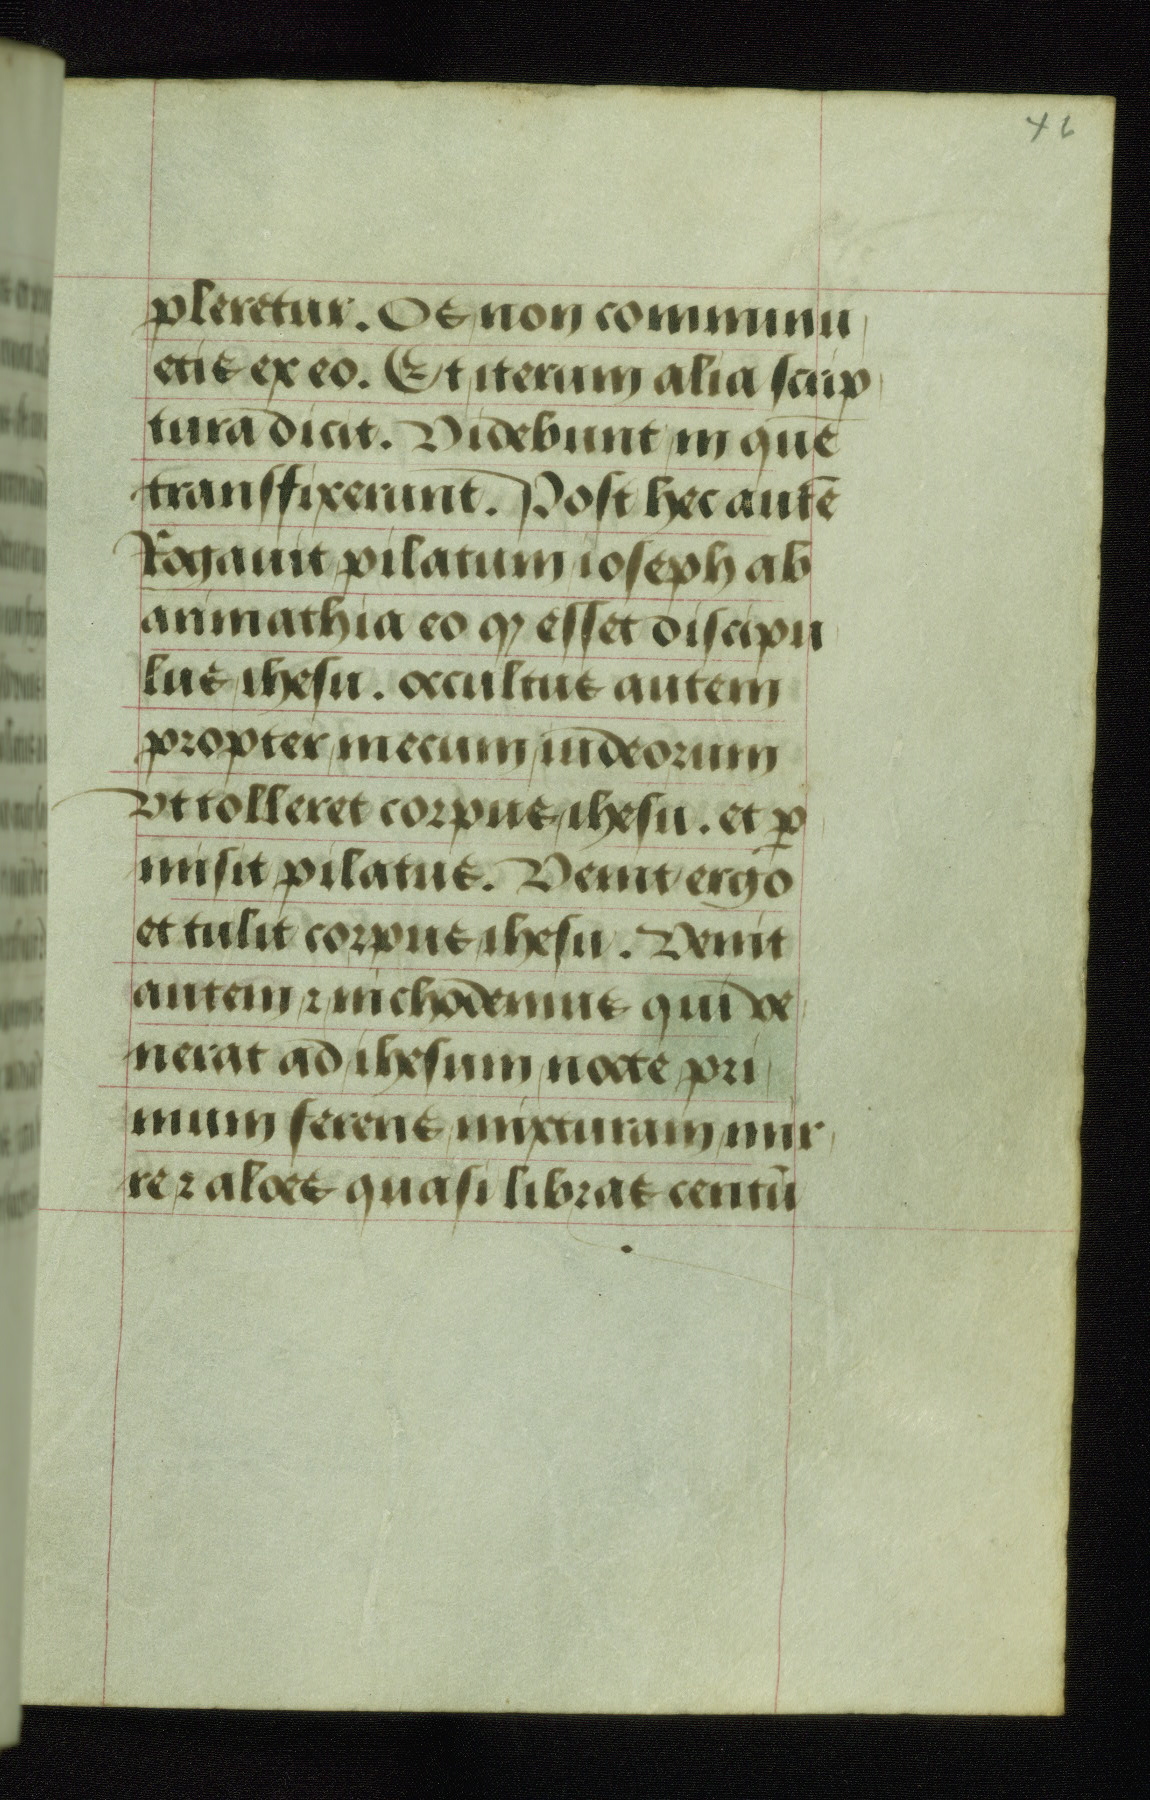 46
pleretur. Os non comminu
etis ex eo. Et iterum alia scrip
tura dicit. Videbunt in quē
transfixerunt. Post hec autē
Rogauit pilatum ioseph ab
arimathia eo ꝙ esset discipu
lus ihesu. occultus autem
propter mecum iudeorum
vt tolleret corpus ihesu. et ꝑ
misit pilatus. Venit ergo
et tulit corpus ihesu. Venit
autem ⁊ nichodemus qui ve
nerat ad ihesum nocte pri
mum ferens mixturam mir
re ⁊ aloes quasi libras centū